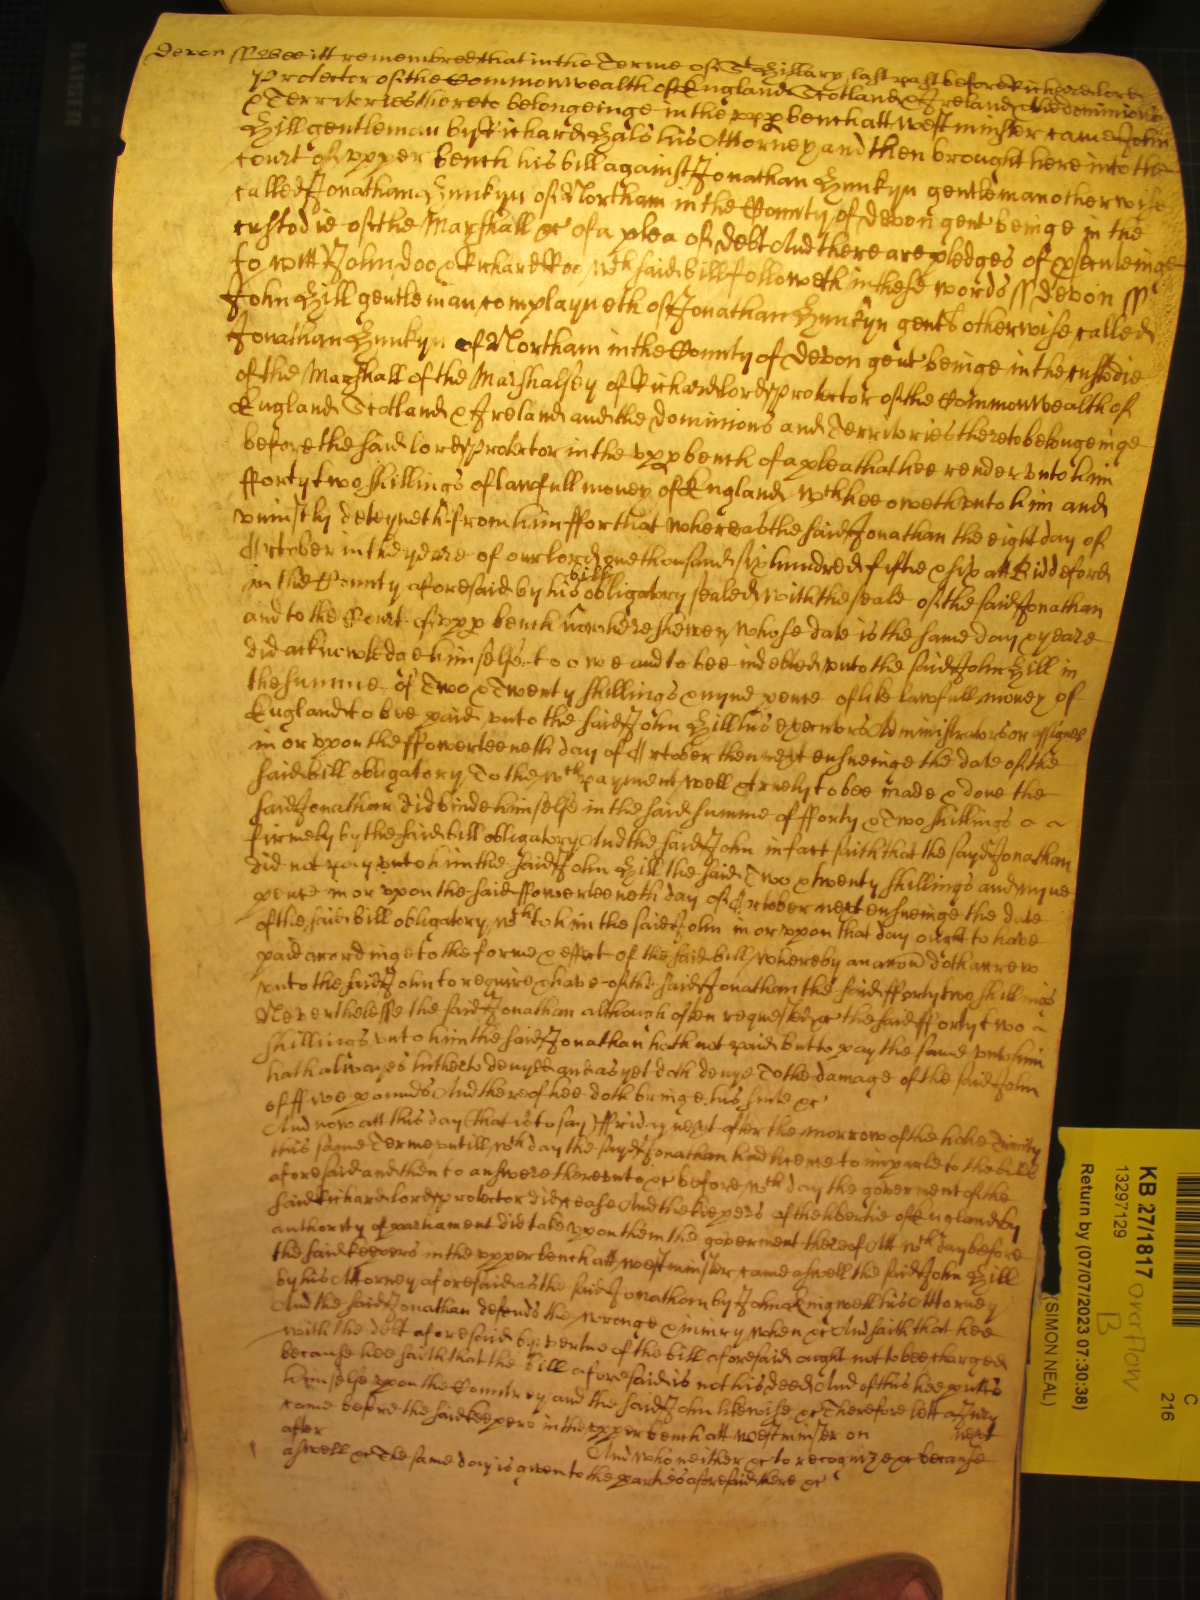 Devon ss Bee itt remembred that in the Terme of St Hillary last past before Richard lord
Protector of the Commonwealth of England Scotland & Ireland & the dominions
& Territories thereto belongeinge in the upp bench att Westminster came John
Hill gentleman by Richard Hals his Attorney and then brought here into the
court of upper bench his bill against Jonathan Hunkyn gentleman otherwise
called Jonathan Hunkyn of Northam in the County of Devon gent beinge in the
custodie of the Marshall &c of a plea of debt And there are pledges of pseculeinge
to witt John doo & Richard Roo wch said bill followeth in these words ss Devon ss
John Hill gentleman complayneth of Jonathan Hunkyn gent otherwise called
Jonathan Hunkyn of Northam in the County of Devon gent beinge in the custodie
of the Marshall of the Marshalsey of Richard lord Protector of the Commonwealth of
England Scotland & Ireland and the dominions and Territories thereto belongeinge
before the said lord Protector in the upp bench of a plea that hee render unto him
fforty two shillings of lawfull money of England wch hee oweth unto him and
uniustly deteyneth from him ffor that whereas the said Jonathan the eight day of
October in the yeare of our lord one thousand six hundred fiftie & six att Biddeford
in the County aforesaid by his bill obligatory sealed with the seale of the said Jonathan
and to the Court of upp bench now here shewen whose date is the same day & yeare
did acknowledge himselfe to owe and to bee indebted unto the said John Hill in
the summe of Two & Twenty shillings & nyne pence of like lawfull money of
England to bee paid unto the said John Hill his executors Administrators or assignes
in or upon the ffowerteeneth day of October then next ensueinge the date of the
said bill obligatory To the wch payment well & truely to bee made & done the
said Jonathan did binde himselfe in the said summe of fforty & Two shillings
firmely by the said bill obligatory And the said John in fact saith that the sayd Jonathan
did not pay unto him the said John Hill the said Two & twenty shillings and nyne
pence in or upon the said ffowerteeneth day of October next ensueinge the date
of the said bill obligatory wch to him the said John in or upon that day ought to have
paid accordinge to the forme & effect of the said bill whereby an accon doth accrew
unto the said John to require & have of the said Jonathan the said fforty two shillings
Neverthelesse the said Jonathan although often requested &c the said fforty two
shillings unto him the said Jonathan hath not paid but to pay the same unto him
hath alwayes hitherto denyed and as yet doth denye To the damage of the said John
of ffive pounds And thereof hee doth bringe his suite &c
And now att this day (that is to say) ffriday next after the morrow of the holie Trinity
this same Terme untill wch day the sayd Jonathan had licence to imparle to the bill
aforesaid and then to answere thereunto &c before wch day the goverment of the
said Richard lord Protector did cease And the keepers of the libertie of England by
authority of parliament did take upon them the goverment thereof Att wch day before
the said keepers in the upper bench att Westminster came aswell the said John Hill
by his Attorney aforesaid as the said Jonathan by John Kingwell his Attorney
And the said Jonathan defends the wronge & iniury when &c And saith that hee
with the debt aforesaid by vertue of the bill aforesaid ought not to bee charged
because hee saith that the bill aforesaid is not his deed And of this hee putts
himselfe upon the Country and the said John likewise &c Therefore lett a Jury
come before the said keepers in the upper bench att Westminster on next
after And who neither &c to recognize &c because
aswell &c The same day is given to the parties aforesaid there &c
KB 27/1817
13297129
Return by (07/07/2023 07:30:38)
(SIMON NEAL)
Overflow
B
C
216